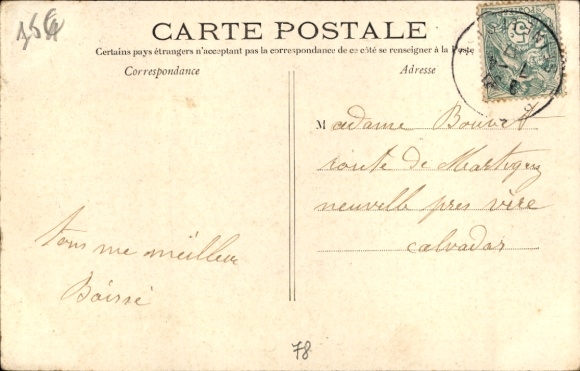 CARTE POSTALE
Certains pays étrangers n'acceptant pas la correspondance de ce côté se renseigner à la Poste
Correspondance
Adresse
Madame Bouvet
route de Martigny
neuville pres vire
calvados
tous me meilleur
Baissé
78